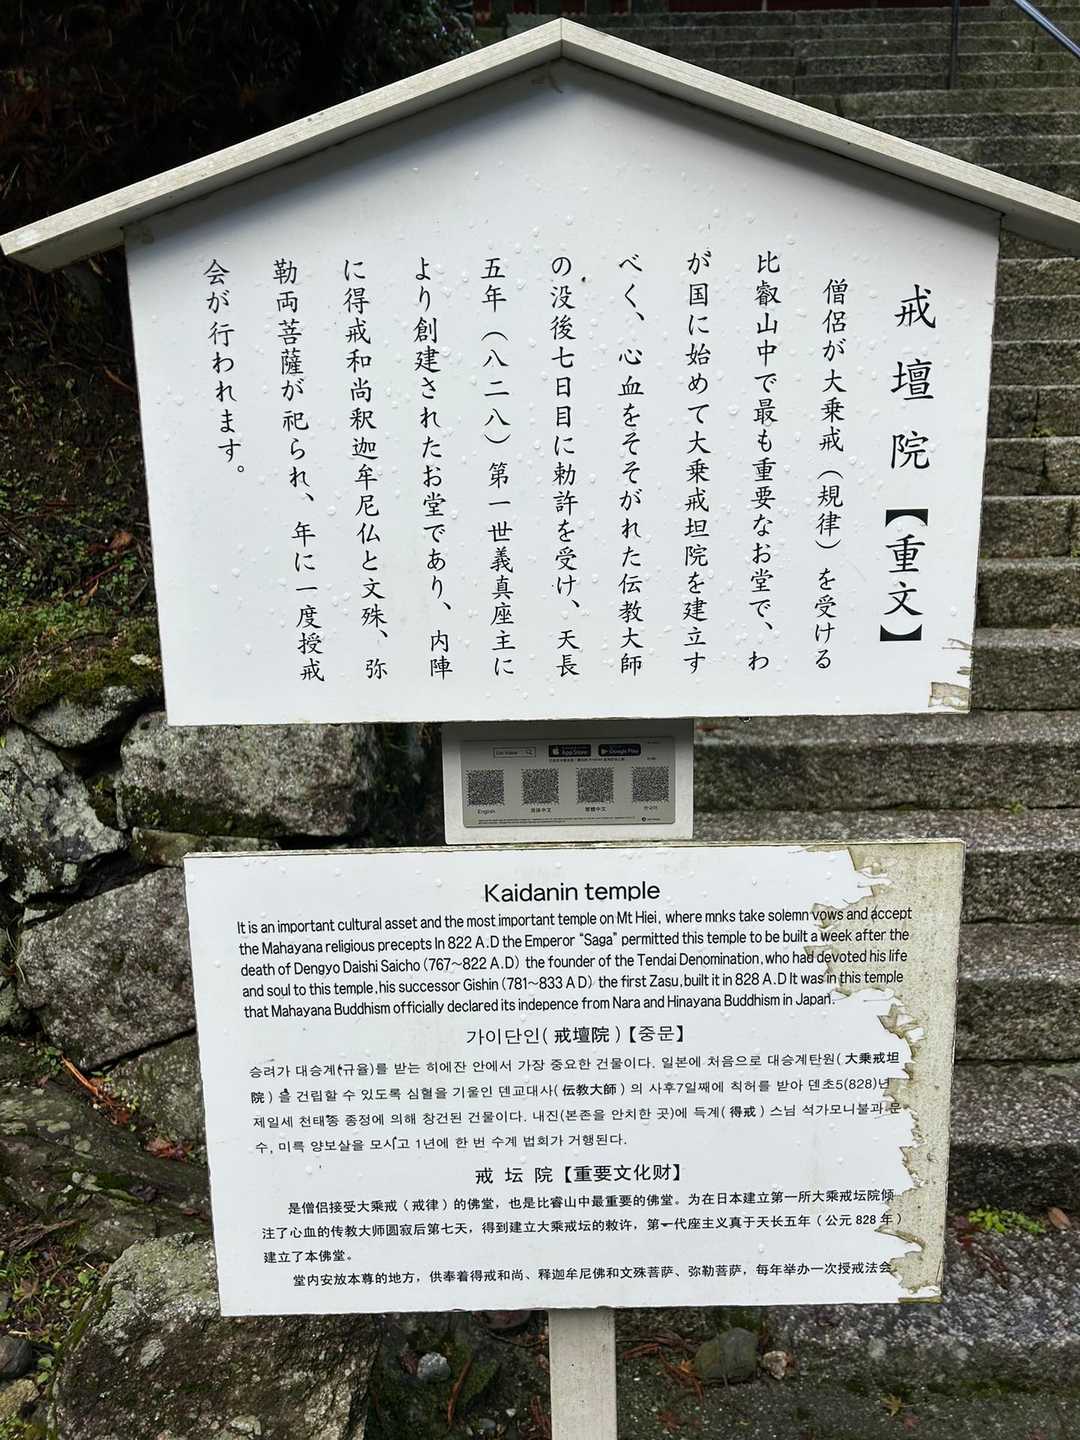 戒壇院【重文】
僧侶が大乗戒（規律）を受ける
比叡山中で最も重要なお堂で、わ
が国に始めて大乗戒坦院を建立す
べく、心血をそそがれた伝教大師
の没後七日目に勅許を受け、天長
五年（八二八）第一世義真座主に
より創建されたお堂であり、内陣
に得戒和尚釈迦牟尼仏と文殊、弥
勒両菩薩が祀られ、年に一度授戒
会が行われます。
App Store
Google Play
English
简体中文
繁體中文
한국어
Kaidanin temple
It is an important cultural asset and the most important temple on Mt Hiei, where mnks take solemn vows and accept
the Mahayana religious precepts In 822 A.D the Emperor “Saga” permitted this temple to be built a week after the
death of Dengyo Daishi Saicho (767～822 A.D) the founder of the Tendai Denomination,who had devoted his life
and soul to this temple,his successor Gishin (781～833 A D) the first Zasu,built it in 828 A.D It was in this temple
that Mahayana Buddhism officially declared its indepence from Nara and Hinayana Buddhism in Japan.
가이단인( 戒壇院 )【중문】
승려가 대승계(규율)를 받는 히에잔 안에서 가장 중요한 건물이다. 일본에 처음으로 대승계탄원( 大乗戒坦
院 ) 을 건립할 수 있도록 심혈을 기울인 덴교대사( 伝教大師 ) 의 사후7일째에 칙허를 받아 덴초5(828)년
제일세 천태종 종정에 의해 창건된 건물이다. 내진(본존을 안치한 곳)에 득계( 得戒 ) 스님 석가모니불과 문
수, 미륵 양보살을 모시고 1년에 한 번 수계 법회가 거행된다.
戒 坛 院【重要文化财】
是僧侣接受大乘戒（戒律）的佛堂，也是比睿山中最重要的佛堂。为在日本建立第一所大乘戒坛院倾
注了心血的传教大师圆寂后第七天，得到建立大乘戒坛的敕许，第一代座主义真于天长五年（公元 828 年）
建立了本佛堂。
堂内安放本尊的地方，供奉着得戒和尚、释迦牟尼佛和文殊菩萨、弥勒菩萨，每年举办一次授戒法会